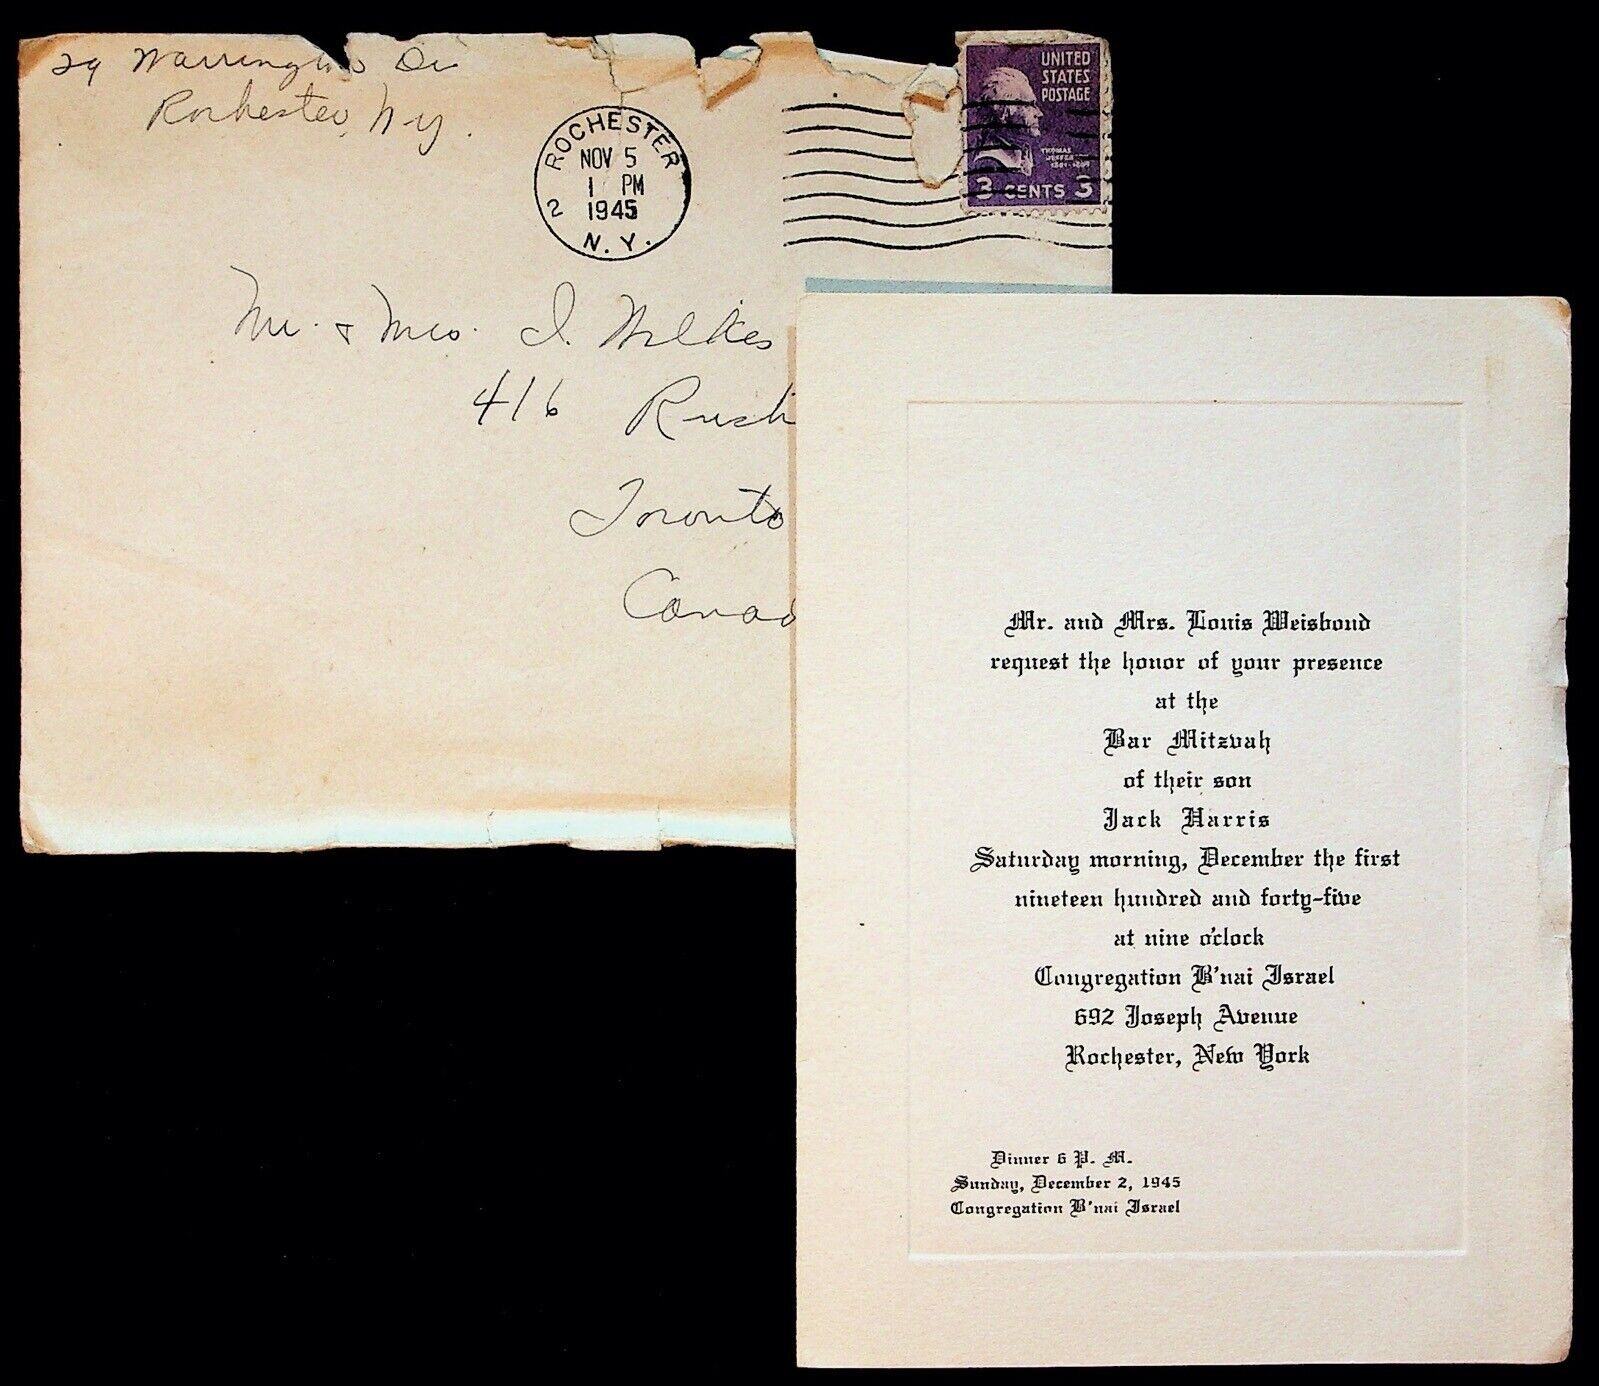 29 Warrington Dr
Rochester, N y.
ROCHESTER
NOV 5
1 PM
1945
2
N. Y.
UNITED
STATES
POSTAGE
THOMAS
JEFFERSON
1801-1809
3 CENTS 3
Mr. & Mrs. I. Wilkes
416 Rush
Toronto
Canad
Mr. and Mrs. Louis Weisbond
request the honor of your presence
at the
Bar Mitzvah
of their son
Jack Harris
Saturday morning, December the first
nineteen hundred and forty-five
at nine o'clock
Congregation B'nai Israel
692 Joseph Avenue
Rochester, New York
Dinner 6 P. M.
Sunday, December 2, 1945
Congregation B'nai Israel